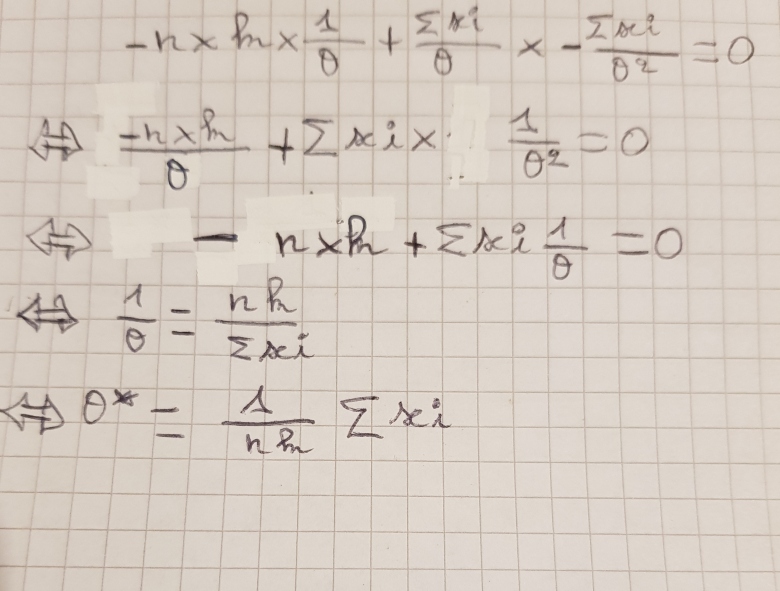 -n × k × 1/θ + Σxi/θ × -Σxi/θ² = 0
⇔ -n × k/θ + Σxi × 1/θ² = 0
⇔ - n × k + Σxi 1/θ = 0
⇔ 1/θ = nk/Σxi
⇔ θ* = 1/nk Σxi